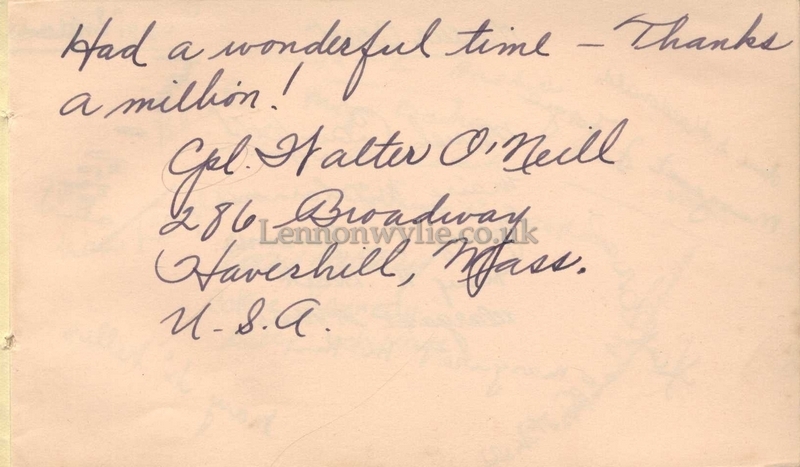 Had a wonderful time – Thanks
a million!
Cpl. Walter O'Neill
286 Broadway
Lennonwylie.co.uk
Haverhill, Mass.
U.S.A.